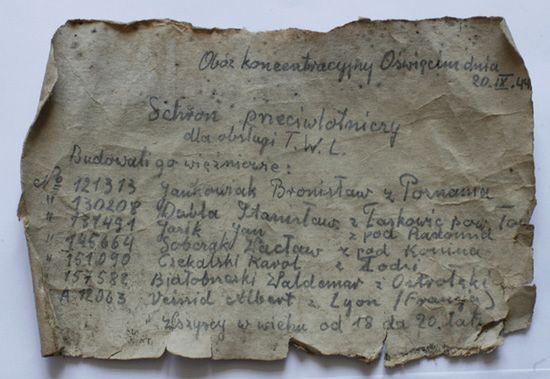 Obóz koncentracyjny Oświęcim dnia
20.IX.44
Schron przeciwlotniczy
dla obsługi T.W.L.
Budowali go więźniowie:
No 121313 Jankowiak Bronisław z Poznania
" 130208 Dubla Stanisław z Łaskowic pow. 
" 131491 Jasik Jan z pod Radomia
" 145664 Sobczak Wacław z pod Konina
" 151090 Czekalski Karol z Łodzi
" 157582 Białobrzeski Waldemar z Ostrołęki
A 12063 Veissid Albert z Lyon (Francja)
Wszyscy w wieku od 18 do 20 lat